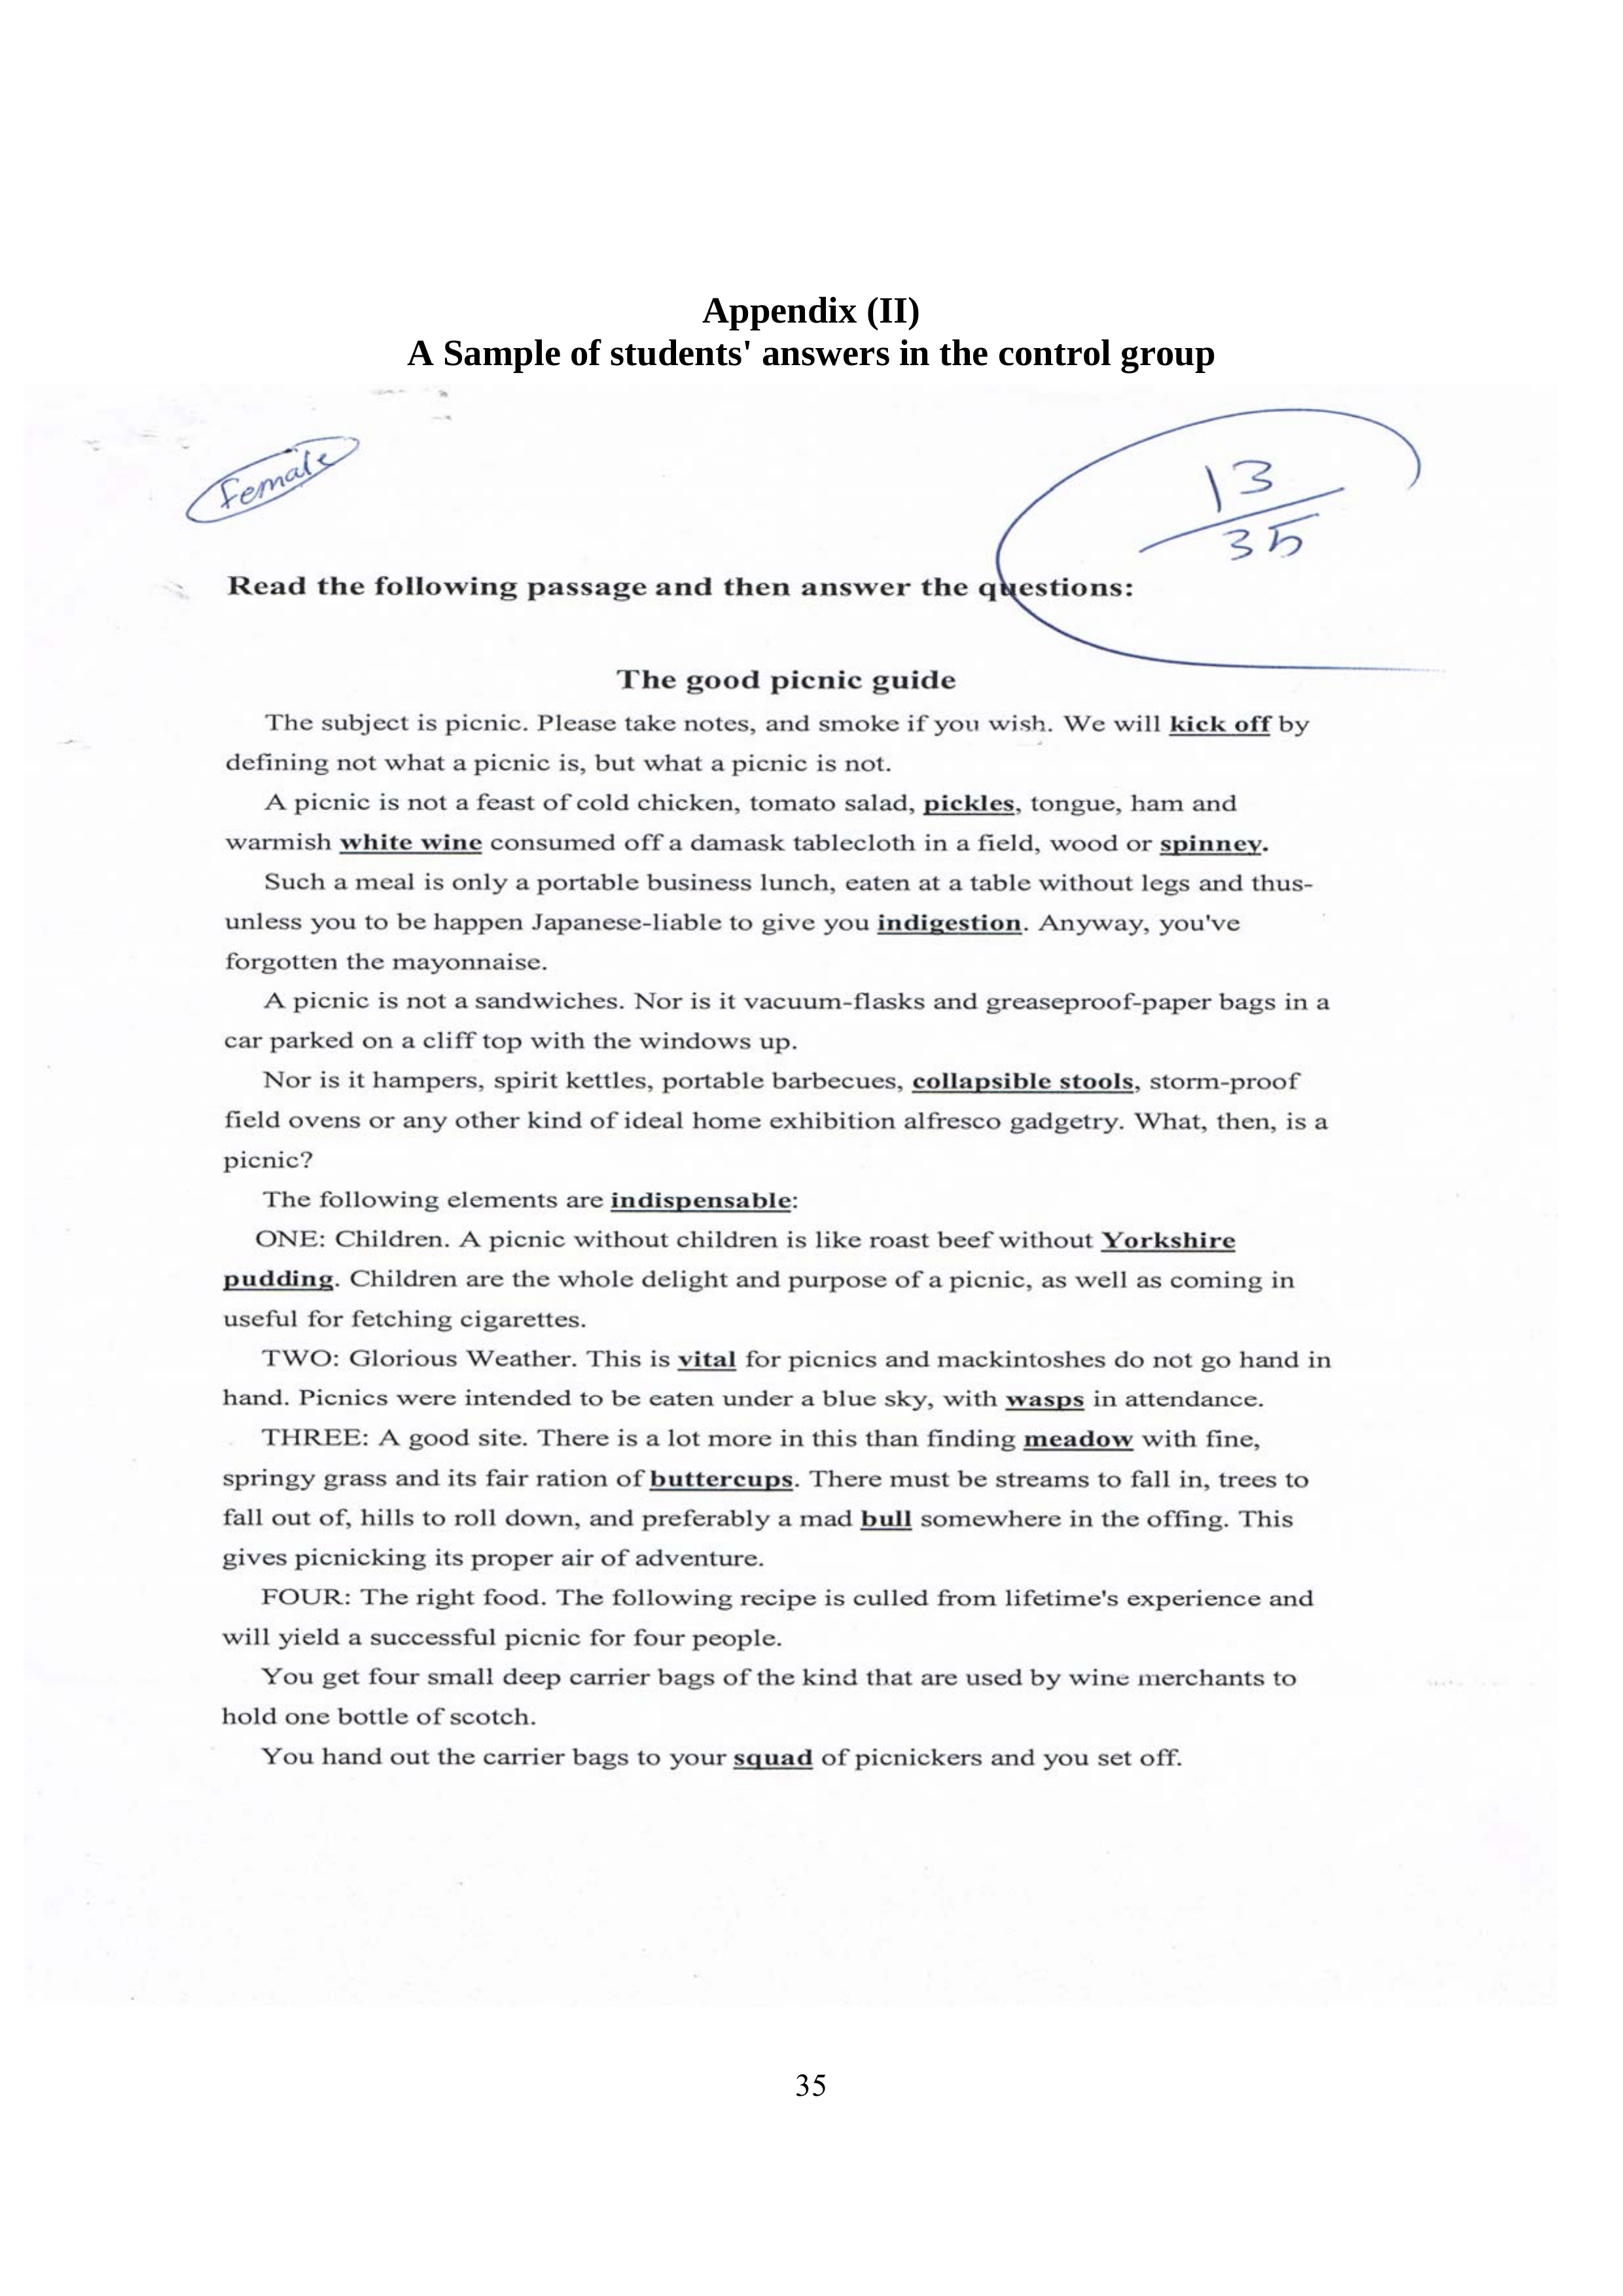 Appendix (II)
A Sample of students' answers in the control group
Female
13
35
Read the following passage and then answer the questions:
The good picnic guide
The subject is picnic. Please take notes, and smoke if you wish. We will kick off by
defining not what a picnic is, but what a picnic is not.
A picnic is not a feast of cold chicken, tomato salad, pickles, tongue, ham and
warmish white wine consumed off a damask tablecloth in a field, wood or spinney.
Such a meal is only a portable business lunch, eaten at a table without legs and thus-
unless you to be happen Japanese-liable to give you indigestion. Anyway, you've
forgotten the mayonnaise.
A picnic is not a sandwiches. Nor is it vacuum-flasks and greaseproof-paper bags in a
car parked on a cliff top with the windows up.
Nor is it hampers, spirit kettles, portable barbecues, collapsible stools, storm-proof
field ovens or any other kind of ideal home exhibition alfresco gadgetry. What, then, is a
picnic?
The following elements are indispensable:
ONE: Children. A picnic without children is like roast beef without Yorkshire
pudding. Children are the whole delight and purpose of a picnic, as well as coming in
useful for fetching cigarettes.
TWO: Glorious Weather. This is vital for picnics and mackintoshes do not go hand in
hand. Picnics were intended to be eaten under a blue sky, with wasps in attendance.
THREE: A good site. There is a lot more in this than finding meadow with fine,
springy grass and its fair ration of buttercups. There must be streams to fall in, trees to
fall out of, hills to roll down, and preferably a mad bull somewhere in the offing. This
gives picnicking its proper air of adventure.
FOUR: The right food. The following recipe is culled from lifetime's experience and
will yield a successful picnic for four people.
You get four small deep carrier bags of the kind that are used by wine merchants to
hold one bottle of scotch.
You hand out the carrier bags to your squad of picnickers and you set off.
35